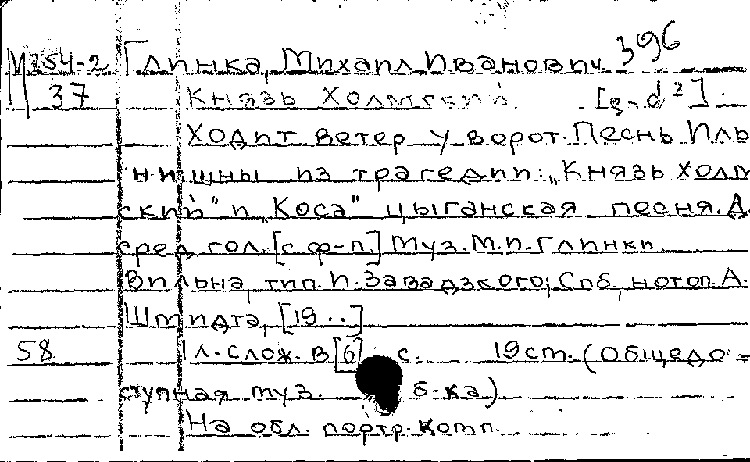 М254-2 Глинка, Михаил Иванович. 396
37 Князь Холмский. [g-d²]
Ходит ветер у ворот. Песнь Иль
иншны из трагедии: „Князь Холм
ский" и „Коса" цыганская песня. Д
сред. гол. [с ф-п.] Муз. М.И. Глинки.
Вильна, тип. И. Завадзского; Спб, нотоп. А.
Шмидта, [19..]
58 1 л. слож. в [6] с. 19 см. (Общедо=
ступная муз. б-ка)
На обл. портр. комп.